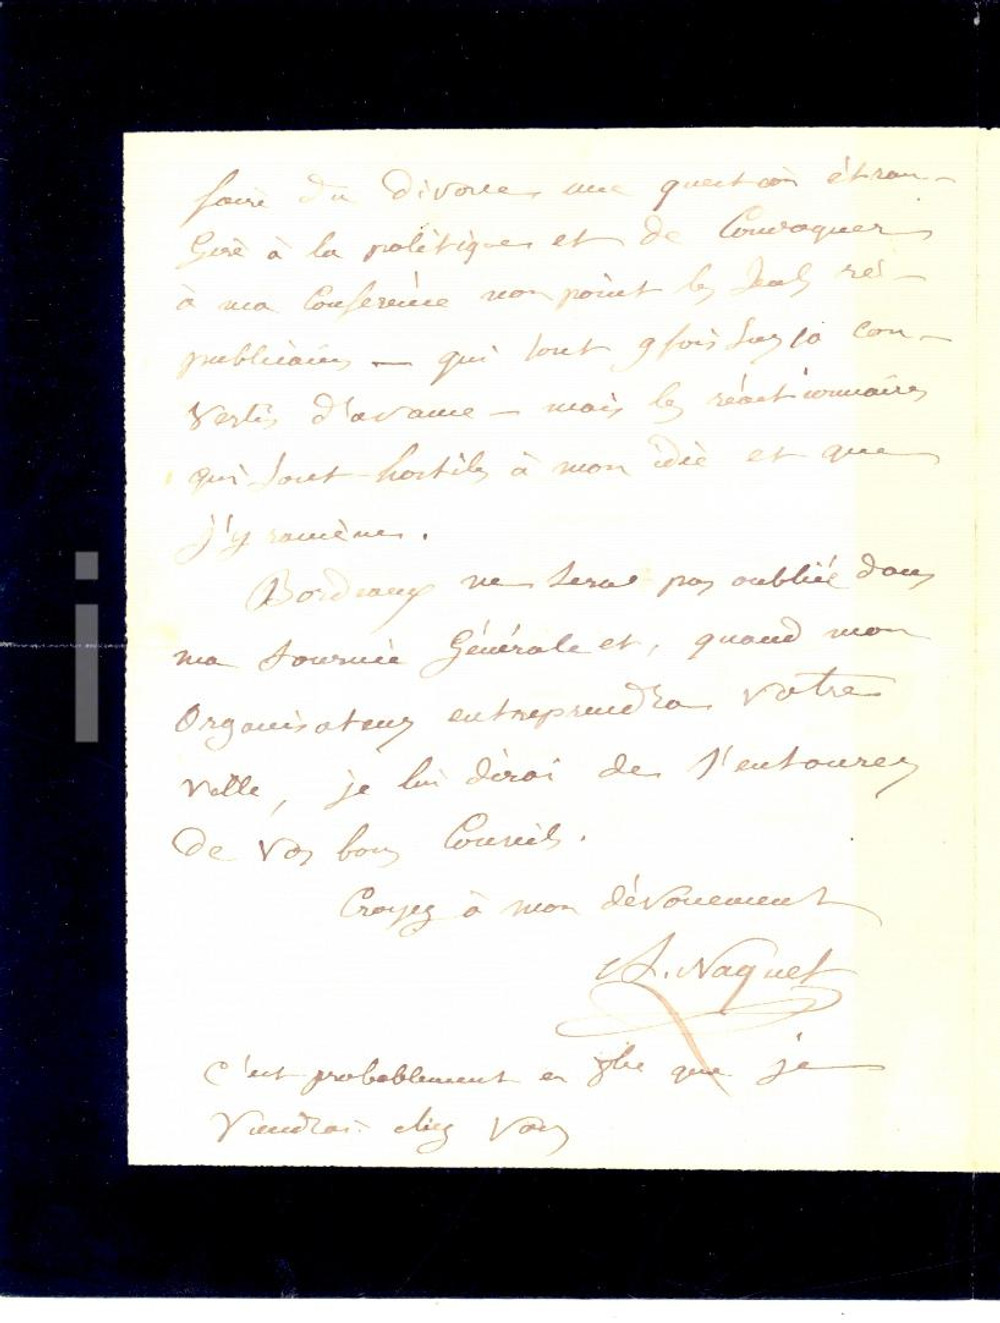 faire du divorce une question étran-
gère à la politique et de convoquer
à ma conférence non point les seuls ré-
publicains — qui sont 9 fois sur 10 con-
vertis d'avance — mais les réactionnaires
qui sont hostiles à mon idée et que
j'y ramène.
Bordeaux ne sera pas oublié dans
ma tournée générale et, quand mon
organisateur entreprendra votre
ville, je lui dirai de s'entourer
de vos bons conseils.
Croyez à mon dévouement
A. Naquet
c'est probablement en que je
viendrai chez vous